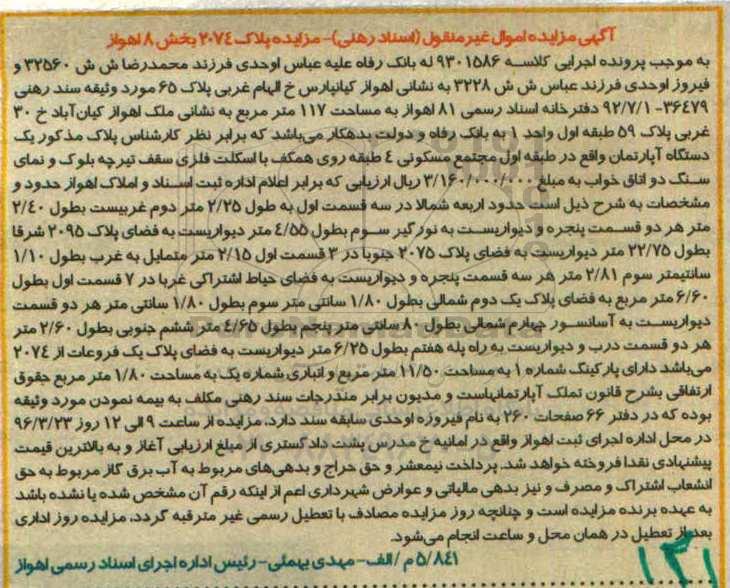 آگهی مزایده اموال غیر منقول (اسناد رهنی) - مزایده پلاک ۲۰۷۴ بخش ۸ اهواز
به موجب پرونده اجرایی کلاسه ۹۳۰۱۵۸۶ له بانک رفاه علیه عباس اوحدی فرزند محمدرضا ش ش ۳۲۵۶۰ و
فیروز اوحدی فرزند عباس ش ش ۳۲۲۸ به نشانی اهواز کیانپارس خ الهام غربی پلاک ۶۵ مورد وثیقه سند رهنی
۳۶۴۷۹- ۹۲/۷/۱ دفترخانه اسناد رسمی ۸۱ اهواز به مساحت ۱۱۷ متر مربع به نشانی ملک اهواز کیان‌آباد خ ۳۰
غربی پلاک ۵۹ طبقه اول واحد ۱ به بانک رفاه و دولت بدهکار می‌باشد که برابر نظر کارشناس پلاک مذکور یک
دستگاه آپارتمان واقع در طبقه اول مجتمع مسکونی ۴ طبقه روی همکف با اسکلت فلزی سقف تیرچه بلوک و نمای
سنگ دو اتاق خواب به مبلغ ۳/۱۶۰/۰۰۰/۰۰۰ ریال ارزیابی که برابر اعلام اداره ثبت اسناد و املاک اهواز حدود و
مشخصات به شرح ذیل است حدود اربعه شمالا در سه قسمت اول به طول ۲/۲۵ متر دوم غربیست بطول ۲/۴۰
متر هر دو قسمت پنجره و دیواریست به نورگیر سوم بطول ۴/۵۵ متر دیواریست به فضای پلاک ۲۰۹۵ شرقا
بطول ۲۲/۷۵ متر دیواریست به فضای پلاک ۲۰۷۵ جنوبا در ۳ قسمت اول ۲/۱۵ متر متمایل به غرب بطول ۱/۱۰
سانتیمتر سوم ۲/۸۱ متر هر سه قسمت پنجره و دیواریست به فضای حیاط اشتراکی غربا در ۷ قسمت اول بطول
۶/۶۰ متر مربع به فضای پلاک یک دوم شمالی بطول ۱/۸۰ سانتی متر سوم بطول ۱/۸۰ سانتی متر هر دو قسمت
دیواریست به آسانسور چهارم شمالی بطول ۸۰ سانتی متر پنجم بطول ۴/۶۵ متر ششم جنوبی بطول ۲/۶۰ متر
هر دو قسمت درب و دیواریست به راه پله هفتم بطول ۶/۲۵ متر دیواریست به فضای پلاک یک فروعات از ۲۰۷۴
می‌باشد دارای پارکینگ شماره ۱ به مساحت ۱۱/۵۰ متر مربع و انباری شماره یک به مساحت ۱/۸۰ متر مربع حقوق
ارتفاقی بشرح قانون تملک آپارتمانهاست و مدیون برابر مندرجات سند رهنی مکلف به بیمه نمودن مورد وثیقه
بوده که در دفتر ۶۶ صفحات ۲۶۰ به نام فیروزه اوحدی سابقه سند دارد. مزایده از ساعت ۹ الی ۱۲ روز ۹۶/۳/۲۳
در محل اداره اجرای ثبت اهواز واقع در امانیه خ مدرس پشت دادگستری از مبلغ ارزیابی آغاز و به بالاترین قیمت
پیشنهادی نقدا فروخته خواهد شد. پرداخت نیمعشر و حق حراج و بدهی‌های مربوط به آب برق گاز مربوط به حق
انشعاب اشتراک و مصرف و نیز بدهی مالیاتی و عوارض شهرداری اعم از اینکه رقم آن مشخص شده یا نشده باشد
به عهده برنده مزایده است و چنانچه روز مزایده مصادف با تعطیل رسمی غیر مترقبه گردد، مزایده روز اداری
بعد از تعطیل در همان محل و ساعت انجام می‌شود.
۵/۸۴۱ م / الف - مهدی بهمئی - رئیس اداره اجرای اسناد رسمی اهواز